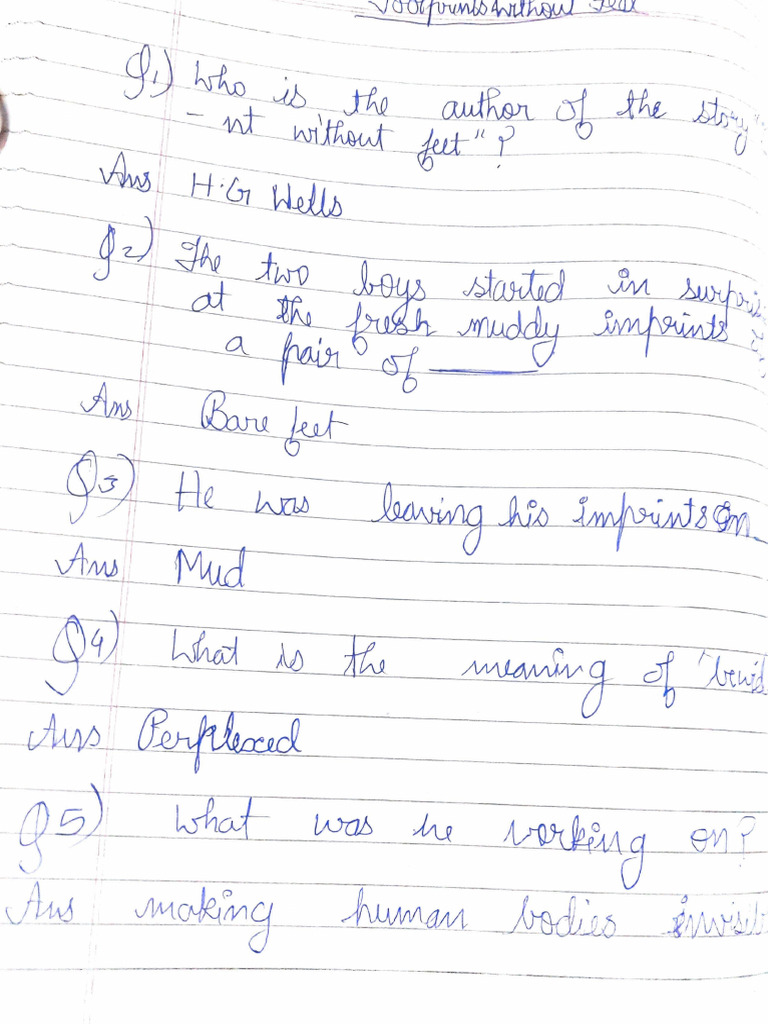 Footprints without Feet
Q1) Who is the author of the story
- nt without feet"?
Ans H.G Wells
Q2) The two boys started in surpris
at the fresh muddy imprints
a pair of ______
Ans Bare feet
Q3) He was leaving his imprints on
Ans Mud
Q4) What is the meaning of "bewid
Ans Perplexed
Q5) What was he working on?
Ans making human bodies invisib